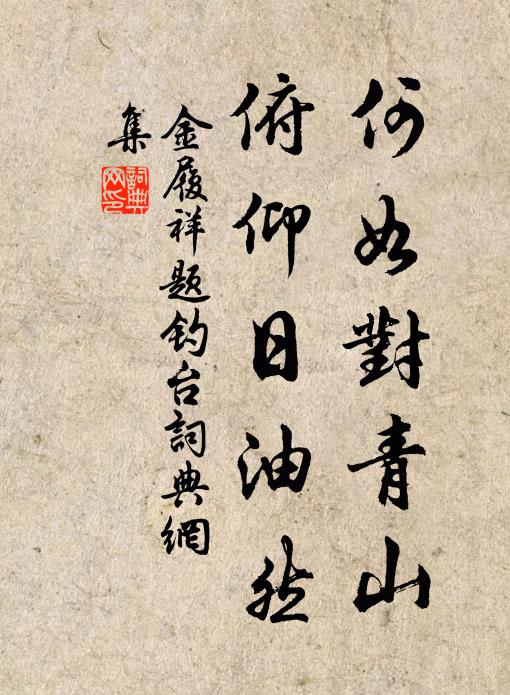 何如對青山
俯仰日油然
金履祥題釣台詞典網
集
詞典
网印